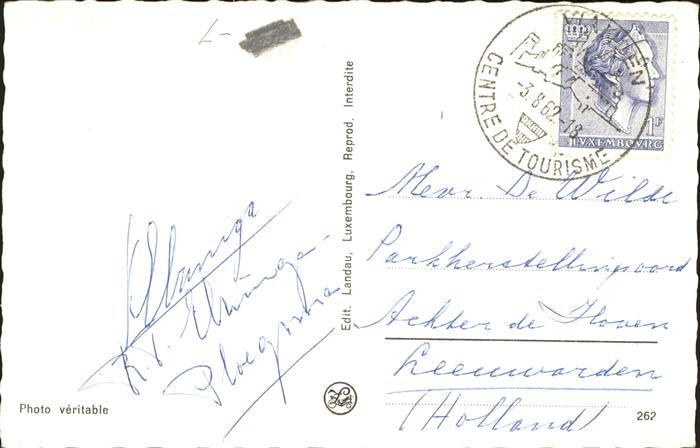 7-
VIANDEN
-3.8.62.-18
CENTRE DE TOURISME
1F
LUXEMBOURG
Mevr. De Wilde
Parkherstellingsoord
Achter de Hoven
Leeuwarden
(Holland)
Ploegsma
Edit. Landau, Luxembourg, Reprod. Interdite
Photo véritable
262